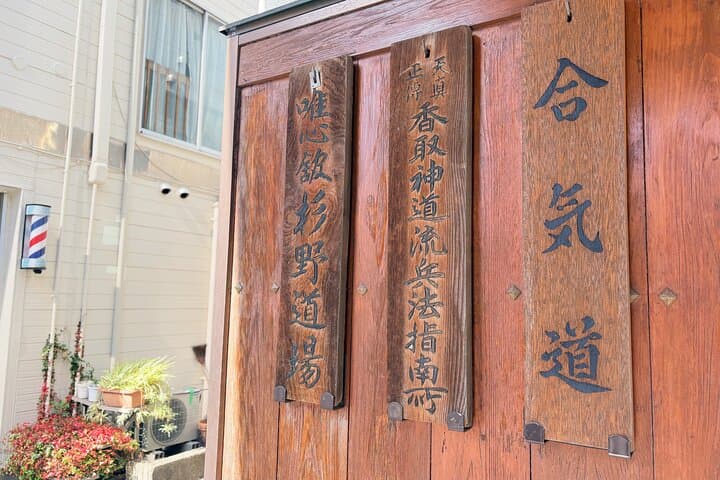 合気道
天眞
正傳
香取神道流兵法指南所
唯心舘杉野道場